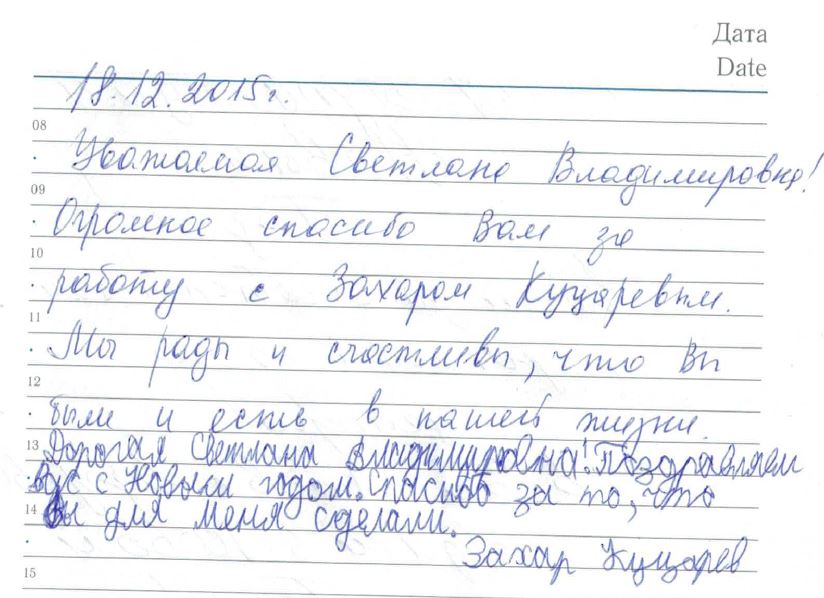 Дата
Date
18.12.2015г.
08
Уважаемая Светлана Владимировна!
09
Огромное спасибо Вам за
10
работу с Захаром Куцаревым.
11
Мы рады и счастливы, что Вы
12
были и есть в нашей жизни.
13 Дорогая Светлана Владимировна! Поздравляем
Вас с Новым годом. Спасибо за то, что
14 Вы для меня сделали.
Захар Куцарев
15